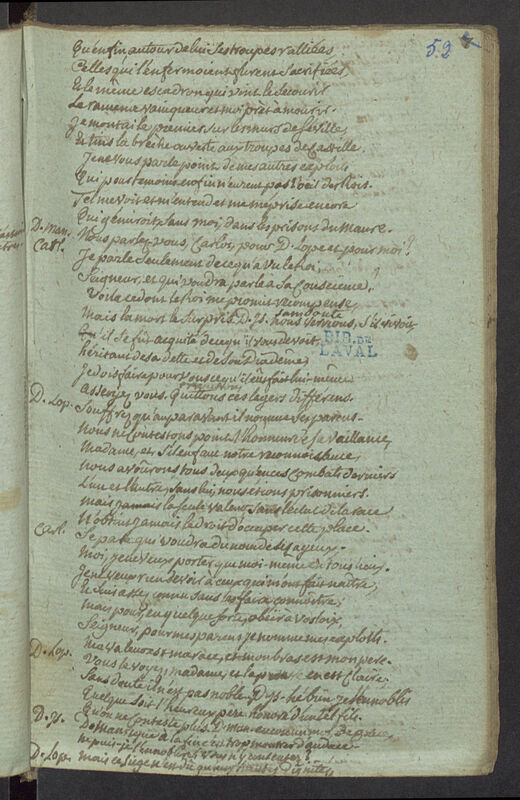 52
Qu'enfin autour de lui ses troupes ralliées
Celles qui l'enfermoient furent sacrifiées,
Et le même escadron qui vint le secourir
Le ramena vainqueur et moi prêt à mourir.
Je montai le premier sur les murs de Séville,
Et tins la brèche ouverte aux troupes de Castille.
Je ne vous parle point de mes autres exploits
Qui pour temoins n'eurent pas l'oeil des Rois.
Tel me voit et m'entend et me méprise encore
Qui gémiroit sans moi, dans les prisons du Maure.
D. Man. Nous parlez-vous, Carlos, pour D. Lope et pour moi?
Carl. Je parle seulement de ce qu'a vu le Roi
Seigneur, et qui voudra parle à sa conscience.
Voilà ce dont le Roi me promit récompense,
Mais la mort le surprit. D. Is. sans doute
Qu'il se fût acquité de ce qu'il vous devoit.
BIB. DE LAVAL
héritant de sa dette et de son Diadême,
Je dois faire pour vous ce qu'il eût fait lui-même
Asseyez vous. Quittons ces legers differens.
D. Lop. Souffrez qu'auparavant il nomme ses parens.
Nous ne contestons point l'honneur de sa vaillance,
Madame, et s'il en faut notre reconnoissance,
nous avoûrons tous deux qu'en ces combats derniers
L'un et l'autre, sans lui, nous étions prisonniers.
mais jamais la seule valeur sans l'eclat de la race
N'obtint jamais le droit d'occuper cette place.
Carl. Se pare qui voudra du nom de ses ayeux.
Moi, je ne veux porter que moi-même en tous lieux.
Je ne veux rien devoir à ceux qui m'ont fait naitre,
Et suis assez connu sans les faire connoître,
mais pour, en quelque sorte, obéir à vos loix,
Seigneur, pour mes parens je nomme mes exploits.
Ma valeur est ma race, et mon bras est mon père.
D. Lop. Vous le voyez, madame, et la preuve en est claire.
Sans doute il n'est pas noble. D. Is. he bien je l'ennoblis
Quelque soit l'heureux père honoré d'un tel fils.
D. Is. Qu'on ne conteste plus. D. Man. encore un
D. manrique à la fin c'est trop montrer d'audace.
ne puis-je l'ennoblir si vous n'y consentez?
D. Lop. mais ce siége n'est dû qu'aux hautes Dignités